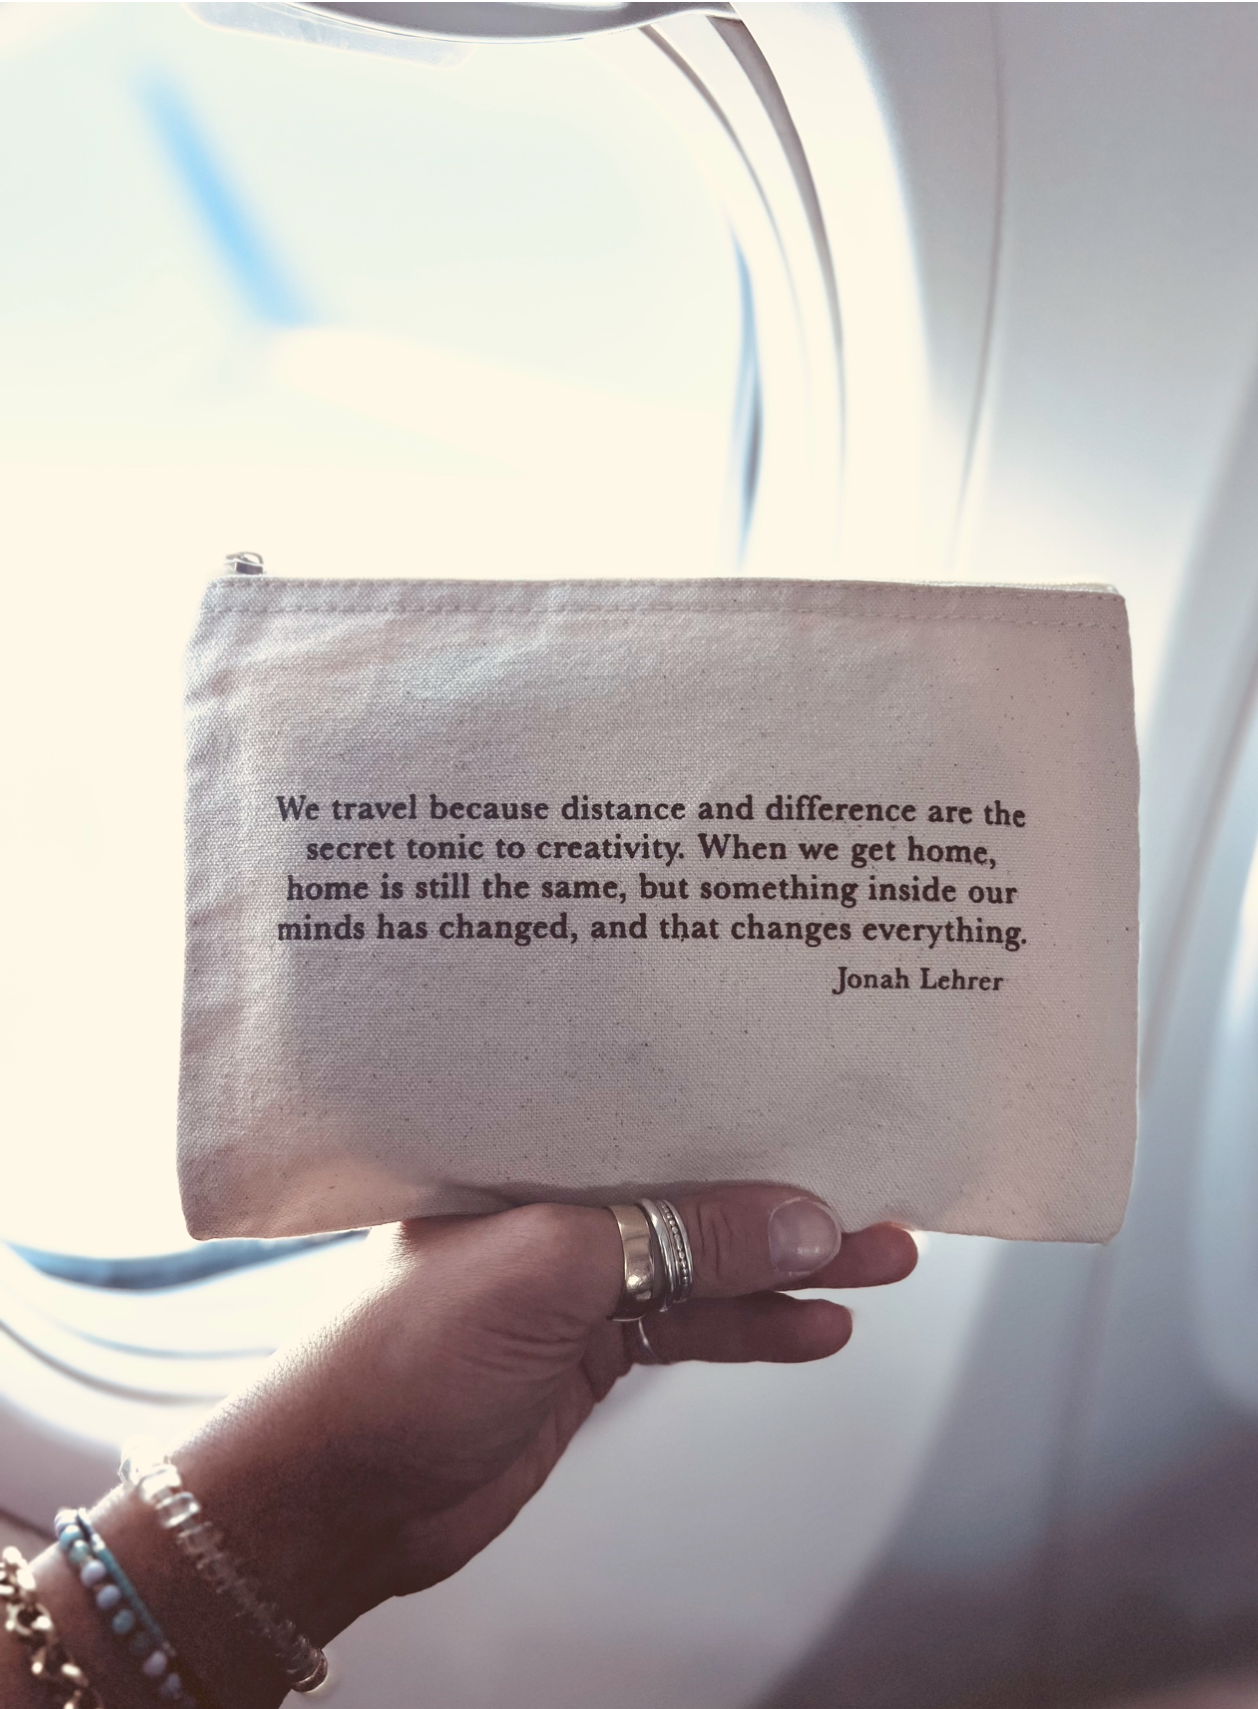 We travel because distance and difference are the
secret tonic to creativity. When we get home,
home is still the same, but something inside our
minds has changed, and that changes everything.
Jonah Lehrer